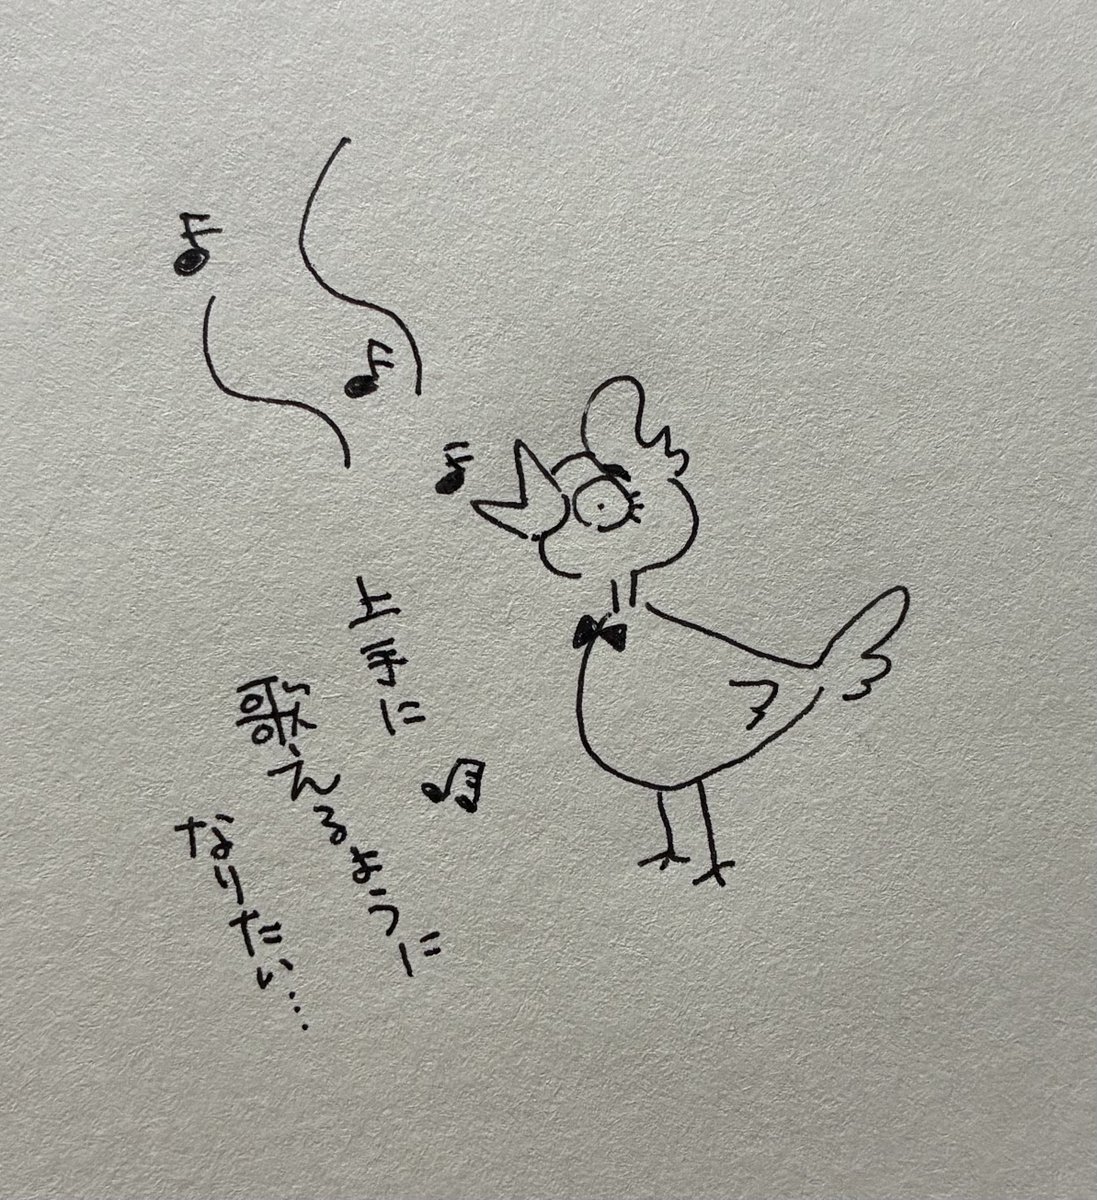 上手に
歌えるように
なりたい…